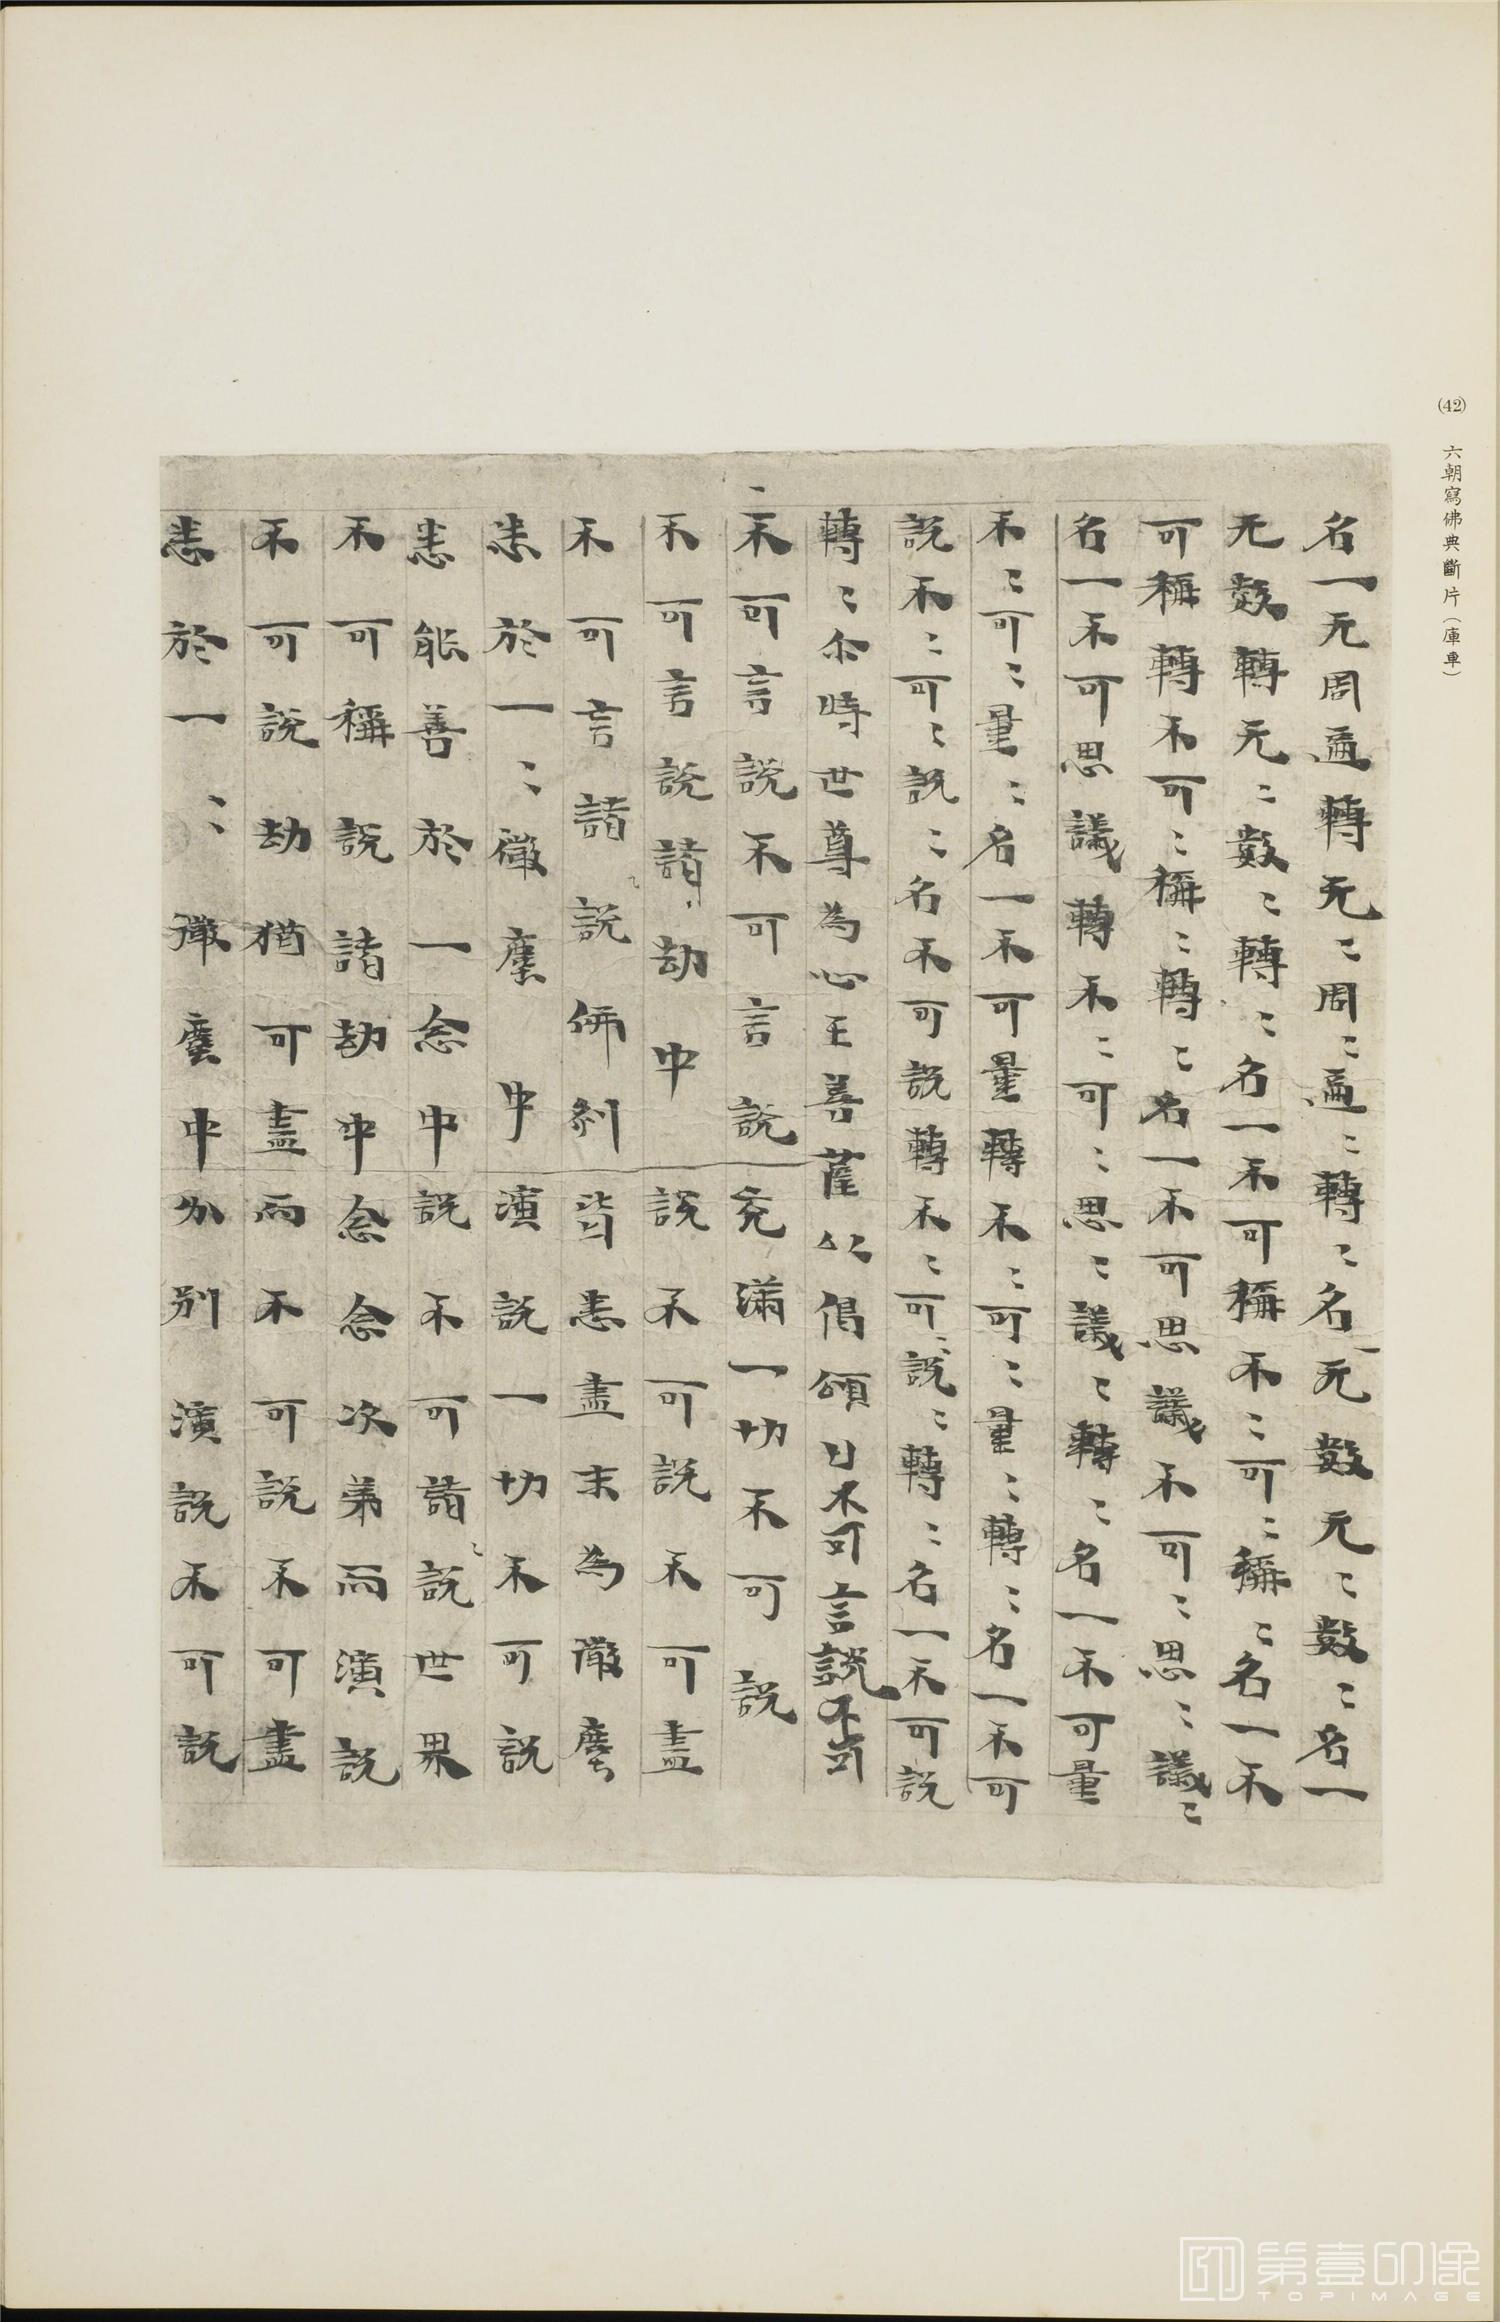 (42) 六朝寫佛典斷片（庫車）
名一无周遍轉无〻周〻遍〻轉〻名一无數无〻數〻名一
无數轉无〻數〻轉〻名一不可稱不〻可〻稱〻名一不
可稱轉不可〻稱〻轉〻名一不可思議不可〻思〻議〻
名一不可思議轉不〻可〻思〻議〻轉〻名一不可量
不〻可〻量〻名一不可量轉不〻可〻量〻轉〻名一不可
說不〻可〻說〻名不可說轉不〻可〻說〻轉〻名一不可說
轉〻尒時世尊為心王菩薩以偈頌曰不可言說不可
不可言說不可言說充滿一切不可說
不可言說諸〻劫中說不可說不可盡
不可言諸說佛刹皆悉盡末為微塵
悉於一〻微塵中演說一切不可說
悉能善於一念中說不可諸說世界
不可稱說諸劫中念念次弟而演說
不可說劫猶可盡而不可說不可盡
悉於一〻微塵中分別演說不可說
第壹印像
TOPIMAGE